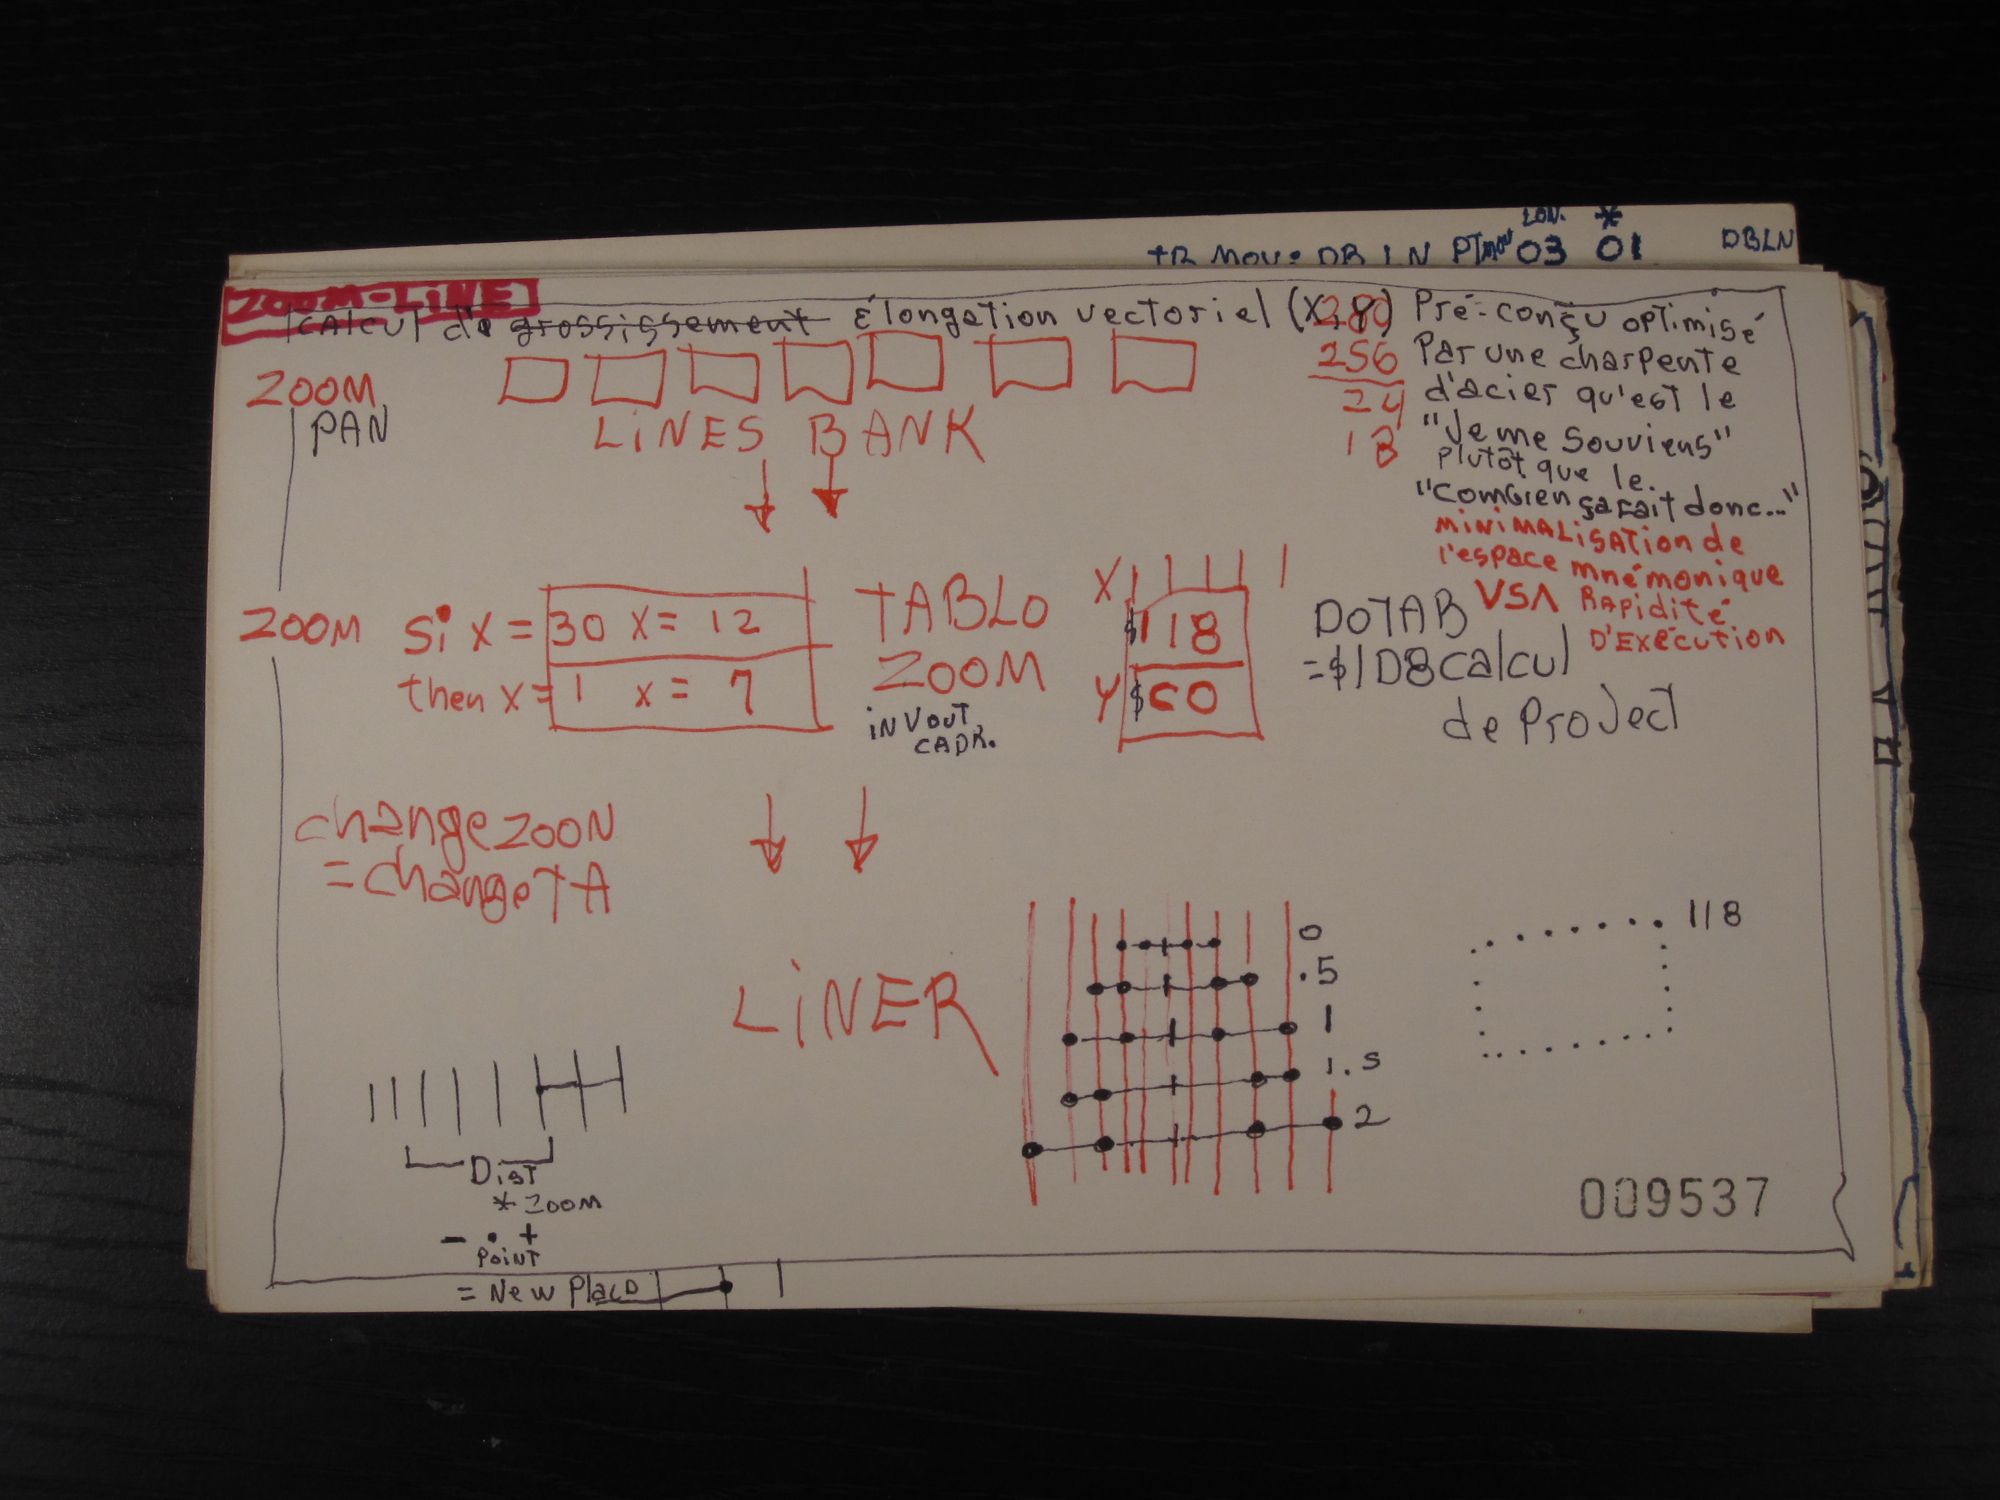 LON. *
03 01 DBLN
ZOOM-LINE
CALCUL de grossissement Élongation vectoriel (X, Y)
280
256
24
18
Pré-conçu optimisé
Par une charpente
d'acier qu'est le
"Je me souviens"
plutôt que le.
"Combien ça fait donc..."
MINIMALISATION de
l'espace mnémonique
VSA RAPIDITÉ
D'EXÉCUTION
ZOOM
PAN
LINES BANK
ZOOM Si X = 30 X = 12
then X = 1 X = 7
TABLO
ZOOM
IN VOUT
CADR.
X
$118
Y $C0
DOTAB
= $1D8 calcul
de Project
change ZOON
= change TA
LINER
0
.5
1
1.5
2
118
DIST
* ZOOM
- • +
POINT
= New Placd
009537